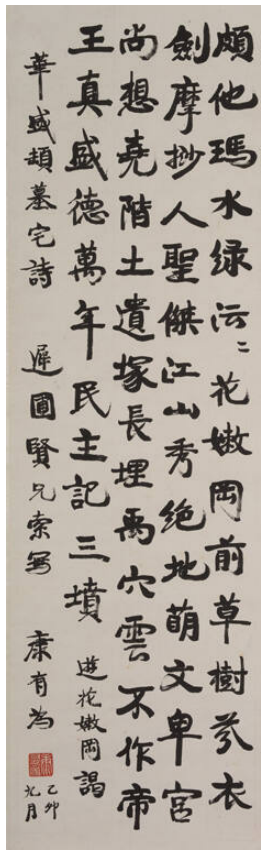 頗他瑪水綠沄〻花嫩岡前草樹芬衣
劍摩挱人聖傑江山秀絕地萌文卑宮
尚想堯階土遺塚長埋禹穴雲不作帝
王真盛德萬年民主記三墳 遊花嫩岡謁
華盛頓墓宅詩 遲圃賢兄索寫 康有為
乙卯
九月